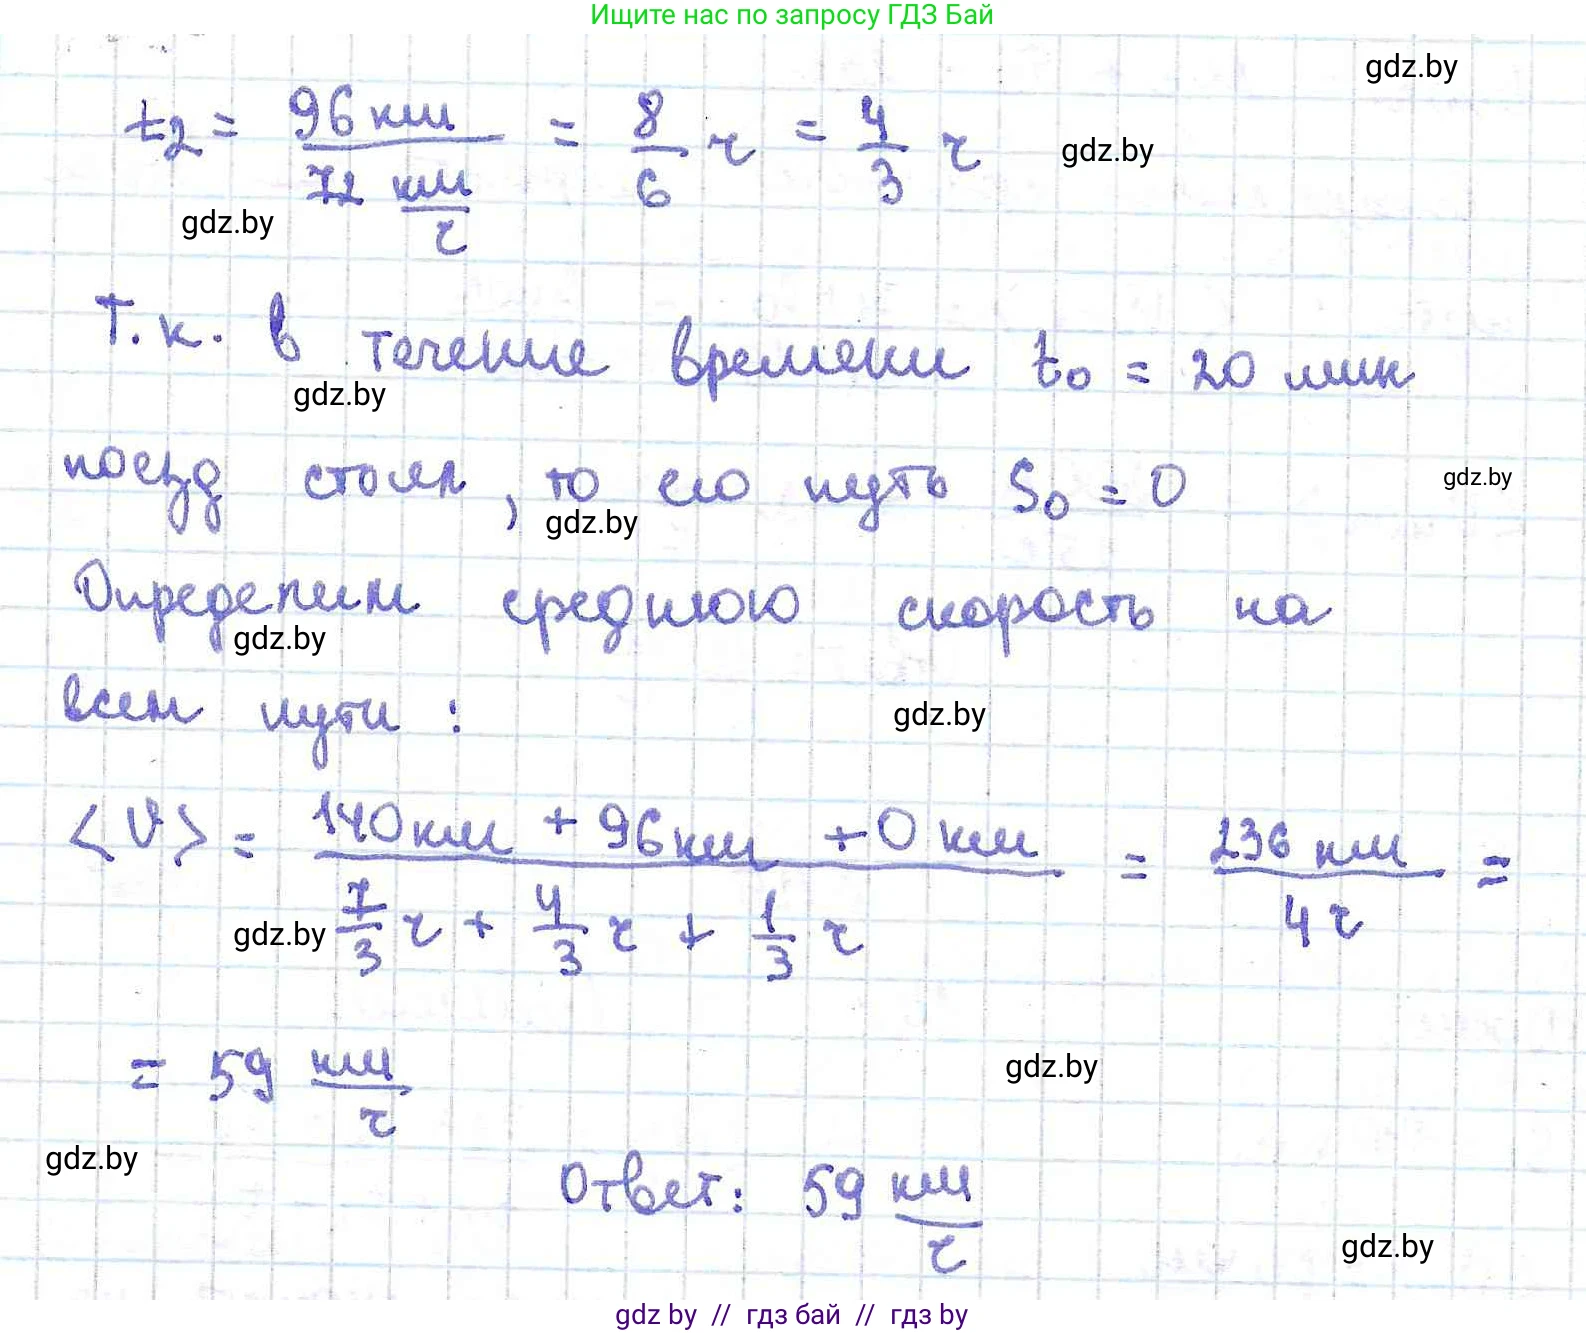 Ищите нас по запросу ГДЗ Бай
gdz.by
t₂ = 96 км / 72 км/ч = 8/6 ч = 4/3 ч
gdz.by
gdz.by
Т.к. в течение времени t₀ = 20 мин
gdz.by
поезд стоял, то его путь S₀ = 0
gdz.by
gdz.by
Определим среднюю скорость на
gdz.by
всем пути:
gdz.by
<v> = 140 км + 96 км + 0 км / 7/3 ч + 4/3 ч + 1/3 ч = 236 км / 4 ч =
gdz.by
= 59 км/ч
gdz.by
gdz.by
Ответ: 59 км/ч
gdz.by
gdz by // гдз бай // гдз by